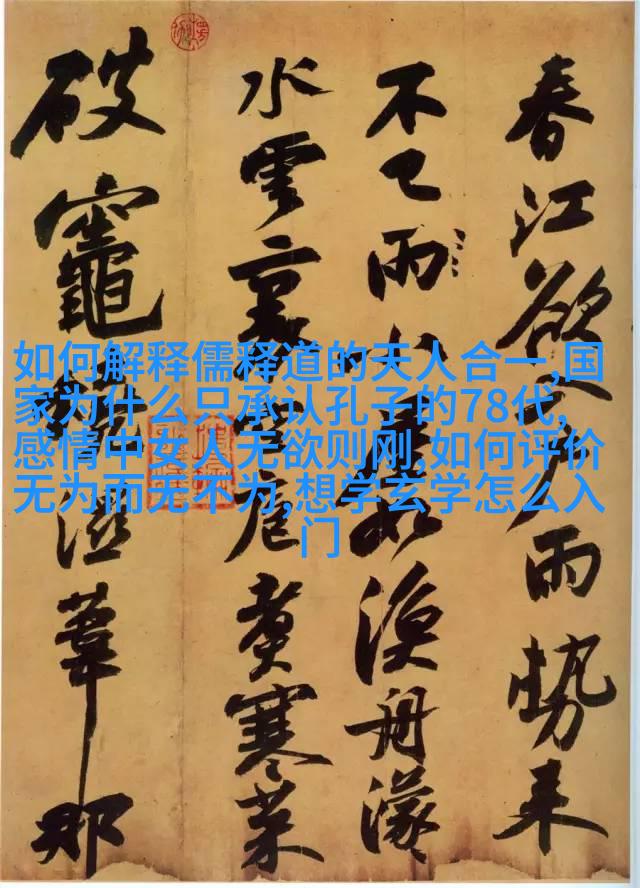 如何解释儒释道的天人合一,国
家为什么只承认孔子的78代,
感情中女人无欲则刚,如何评价
无为而无不为,想学玄学怎么入
门
春江欲入戶雨勢來
不已雨小屋如漁舟濛
水雲裏空庖煮寒菜
破竈燒濕葦那